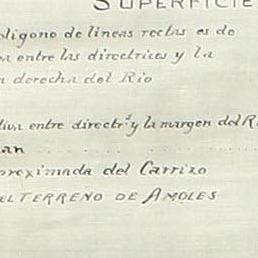 SUPERFICIE
oligono de lineas rectas es de
a entre las directrices y la
n derecha del Rio
tiva entre directrs y la margen del R
an
proximada del Carrizo
EL TERRENO DE AMOLES